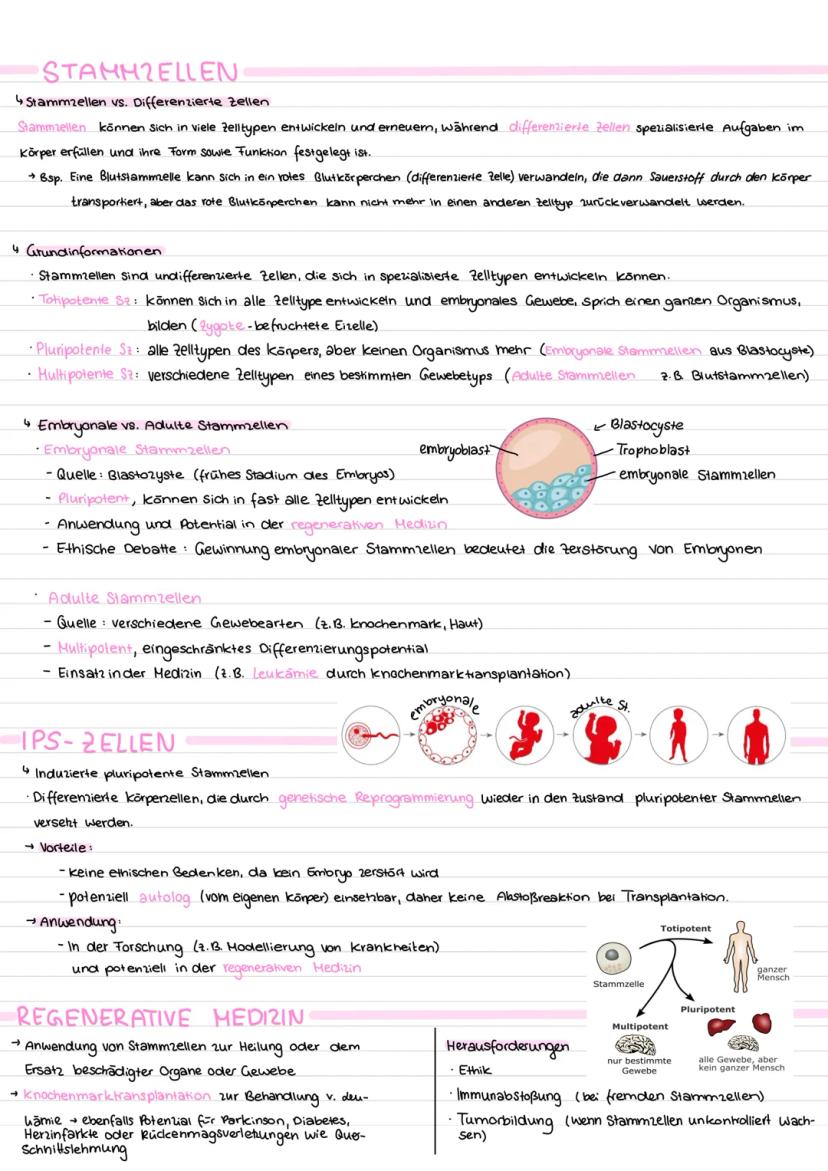 STAMMZELLEN
↳ Stammzellen vs. Differenzierte Zellen
Stammzellen können sich in viele Zelltypen entwickeln und erneuern, während differenzierte Zellen spezialisierte Aufgaben im
Körper erfüllen und ihre Form sowie Funktion festgelegt ist.
→ Bsp. Eine Blutstammzelle kann sich in ein rotes Blutkörperchen (differenzierte Zelle) verwandeln, die dann Sauerstoff durch den Körper
transportiert, aber das rote Blutkörperchen kann nicht mehr in einen anderen Zelltyp zurückverwandelt werden.
↳ Grundinformationen
· Stammzellen sind undifferenzierte Zellen, die sich in spezialisierte Zelltypen entwickeln können.
· Totipotente SZ: können sich in alle Zelltype entwickeln und embryonales Gewebe, sprich einen ganzen Organismus,
bilden (Zygote - befruchtete Eizelle)
· Pluripotente SZ: alle Zelltypen des Körpers, aber keinen Organismus mehr (Embryonale Stammzellen aus Blastocyste)
· Multipotente SZ: verschiedene Zelltypen eines bestimmten Gewebetyps (Adulte Stammzellen z.B. Blutstammzellen)
↳ Embryonale vs. Adulte Stammzellen
· Embryonale Stammzellen
- Quelle: Blastozyste (frühes Stadium des Embryos)
- Pluripotent, können sich in fast alle Zelltypen entwickeln
- Anwendung und Potential in der regenerativen Medizin
- Ethische Debatte: Gewinnung embryonaler Stammzellen bedeutet die Zerstörung von Embryonen
embryoblast
Blastocyste
Trophoblast
embryonale Stammzellen
· Adulte Stammzellen
- Quelle: verschiedene Gewebearten (z.B. Knochenmark, Haut)
- Multipotent, eingeschränktes Differenzierungspotential
- Einsatz in der Medizin (z.B. Leukämie durch Knochenmarktransplantation)
embryonale
adulte St.
IPS-ZELLEN
↳ Induzierte pluripotente Stammzellen
· Differenzierte Körperzellen, die durch genetische Reprogrammierung wieder in den Zustand pluripotenter Stammzellen
versetzt werden.
→ Vorteile:
- keine ethischen Bedenken, da kein Embryo zerstört wird
- potenziell autolog (vom eigenen Körper) einsetzbar, daher keine Abstoßreaktion bei Transplantation.
→ Anwendung:
- In der Forschung (z.B. Modellierung von Krankheiten)
und potenziell in der regenerativen Medizin
Totipotent
Stammzelle
ganzer
Mensch
Pluripotent
Multipotent
nur bestimmte
Gewebe
alle Gewebe, aber
kein ganzer Mensch
REGENERATIVE MEDIZIN
→ Anwendung von Stammzellen zur Heilung oder dem
Ersatz beschädigter Organe oder Gewebe
→ Knochenmarktransplantation zur Behandlung v. Leu-
kämie → ebenfalls Potenzial für Parkinson, Diabetes,
Herzinfarkte oder Rückenmagsverletzungen wie Quer-
schnittslehmung
Herausforderungen
· Ethik
· Immunabstoßung (bei fremden Stammzellen)
· Tumorbildung (wenn Stammzellen unkontrolliert wach-
sen)